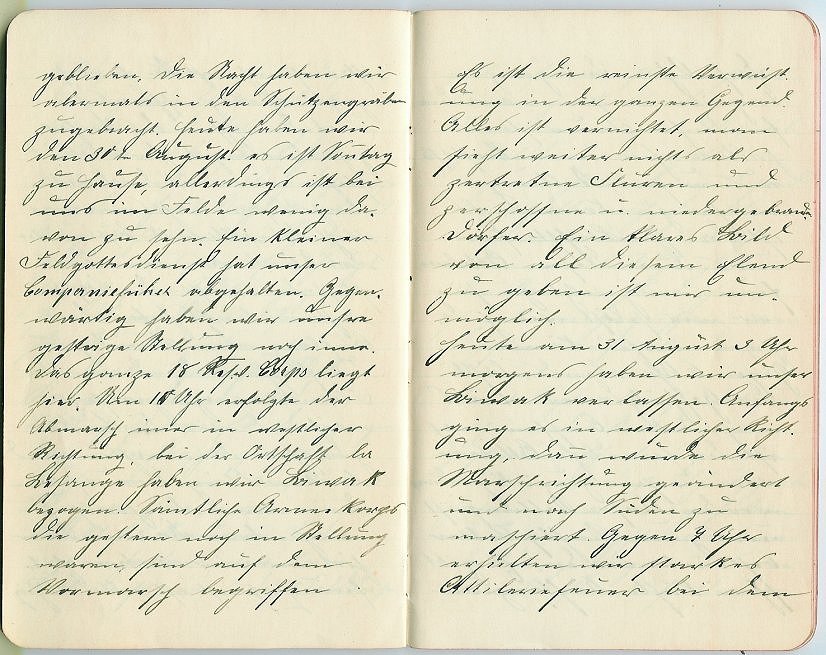 geblieben. Die Nacht haben wir
abermals in den Schützengräben
zugebracht. Heute haben wir
den 30t August. es ist Sontag
zu Hause, allerdings ist bei
uns im Felde wenig da.
von zu sehn. Ein kleiner
Feldgottesdienst hat unser
Companieführer abgehalten. Gegen.
wärtig haben wir unsre
gestrige Stellung noch inne.
Das ganze 18 Resv. Corps liegt
hier. Um Uhr erfolgte der
Abmarsch in westlicher
Richtung, bei der Ortschaft la
Besange haben wir Biwak
bezogen. Sämtliche Armee korps
die gestern noch in Stellung
waren, sind auf dem
Vormarsch begriffen
Es ist die reinste Verwüst.
ung in der ganzen Gegend.
Alles ist vernichtet, man
sieht weiter nichts als
zertretne Fluren und
zerschossne u. niedergebrannte
Dörfer. Ein klares Bild
von all diesem Elend
zu geben ist mir un.
möglich.
Heute am 31 August 3 Uhr
morgens haben wir unser
Biwak verlassen. Anfangs
ging es in westlicher Richt.
ung, dan wurde die
Marschrichtung geändert
und nach Süden zu
marschiert. Gegen 7 Uhr
erhielten wir starkes
Attileriefeuer bei dem